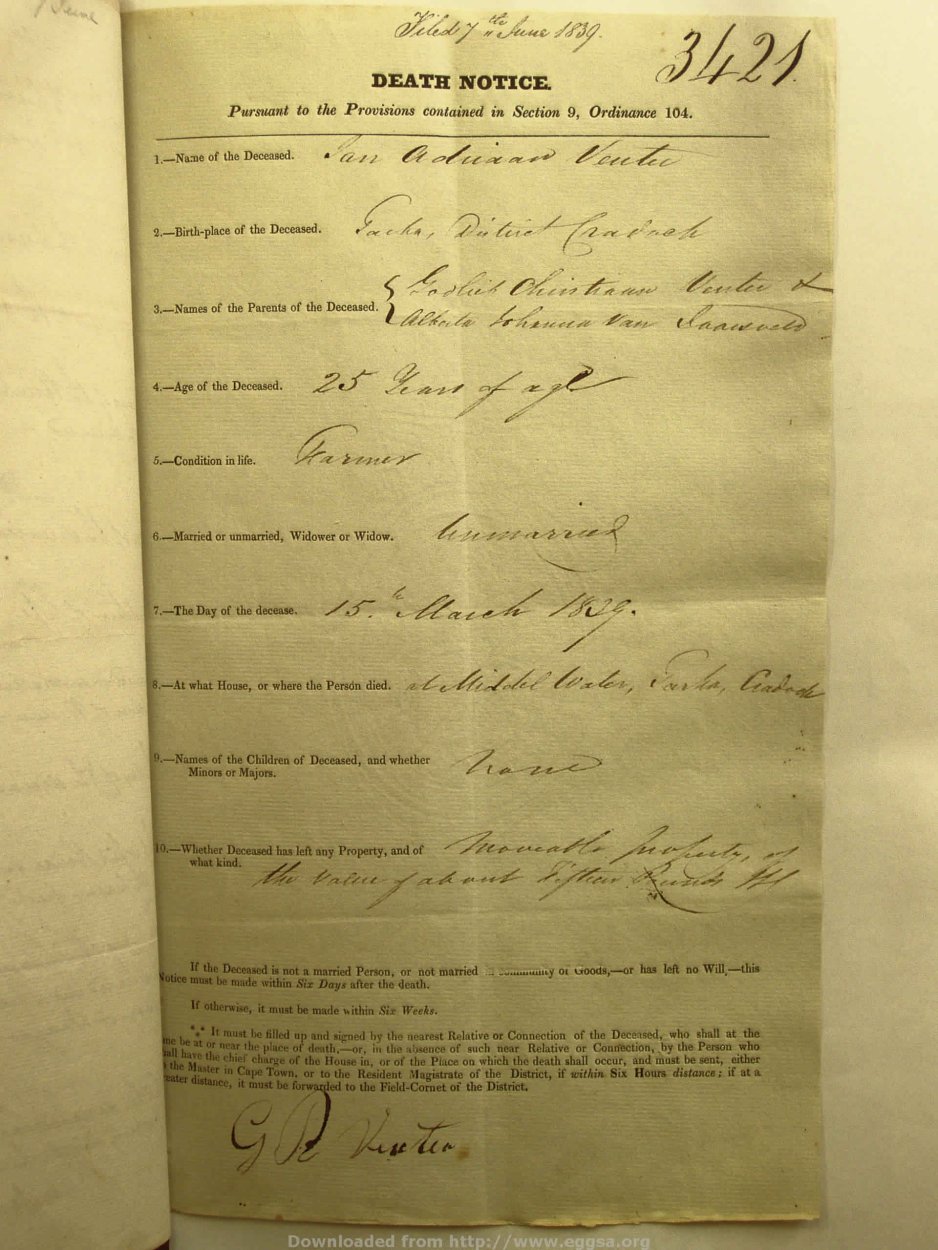 Filed 7th June 1839.
3421.
DEATH NOTICE.
Pursuant to the Provisions contained in Section 9, Ordinance 104.
1.—Name of the Deceased. Jan Adriaan Venter
2.—Birth-place of the Deceased. Tarka, District Cradock
3.—Names of the Parents of the Deceased. Godlieb Christiaan Venter &
Alberta Johanna Van
4.—Age of the Deceased. 25 Years of age
5.—Condition in life. Farmer
6.—Married or unmarried, Widower or Widow. Unmarried
7.—The Day of the decease. 15th March 1839.
8.—At what House, or where the Person died. at Middel Water, Tarka, Cradock
9.—Names of the Children of Deceased, and whether None
Minors or Majors.
10.—Whether Deceased has left any Property, and of Moveable property, of
what kind.
the Value of about Fifteen Pounds
If the Deceased is not a married Person, or not married in community of Goods,—or has left no Will,—this
Notice must be made within Six Days after the death.
If otherwise, it must be made within Six Weeks.
*** It must be filled up and signed by the nearest Relative or Connection of the Deceased, who shall at the
me be at or near the place of death,—or, in the absence of such near Relative or Connection, by the Person who
all have the chief charge of the House in, or of the Place on which the death shall occur, and must be sent, either
the Master in Cape Town, or to the Resident Magistrate of the District, if within Six Hours distance; if at a
eater distance, it must be forwarded to the Field-Cornet of the District.
G R Venter
Downloaded from http://www.eggsa.org